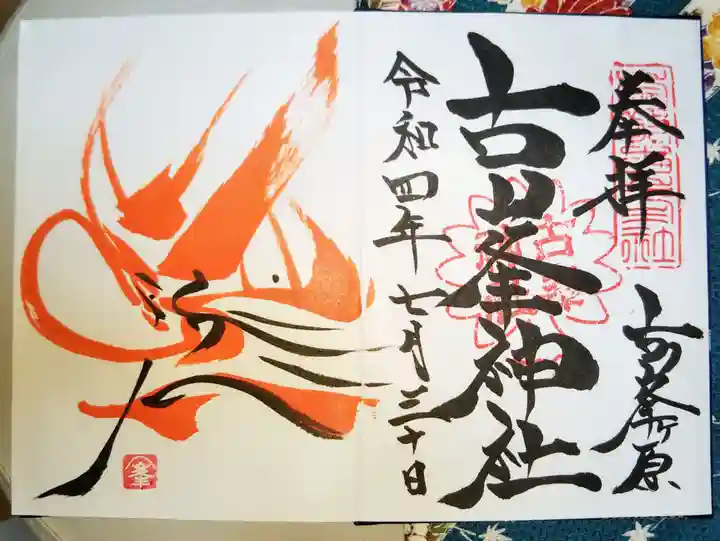 奉拝
古峯ヶ原
古峯神社
令和四年七月三十日
峯